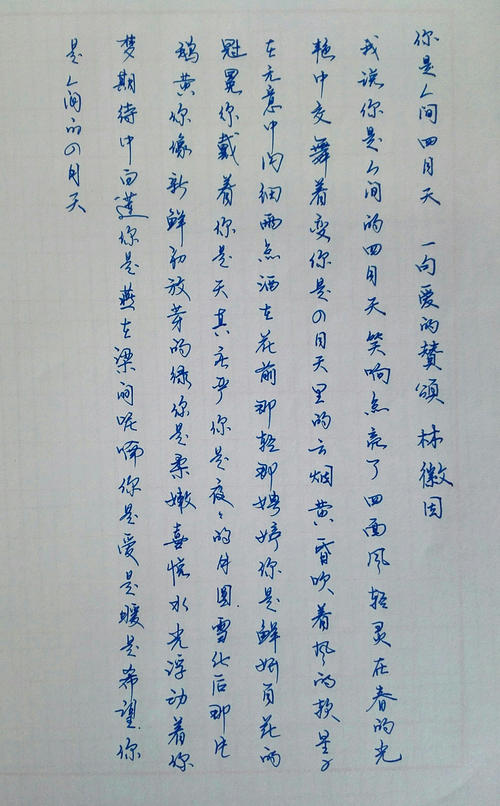 你是人间四月天 一句爱的赞颂 林徽因
我说你是人间的四月天笑响点亮了四面风轻灵在春的光
艳中交舞着变你是四月天里的云烟黄昏吹着风的软星子
在无意中闪细雨点洒在花前那轻那娉婷你是鲜妍百花的
冠冕你戴着你是天真庄严你是夜々的月圆雪化后那片
鹅黄你像新鲜初放芽的绿你是柔嫩喜悦水光浮动着你
梦期待中白莲你是燕在梁间呢喃你是爱是暖是希望你
是人间的四月天